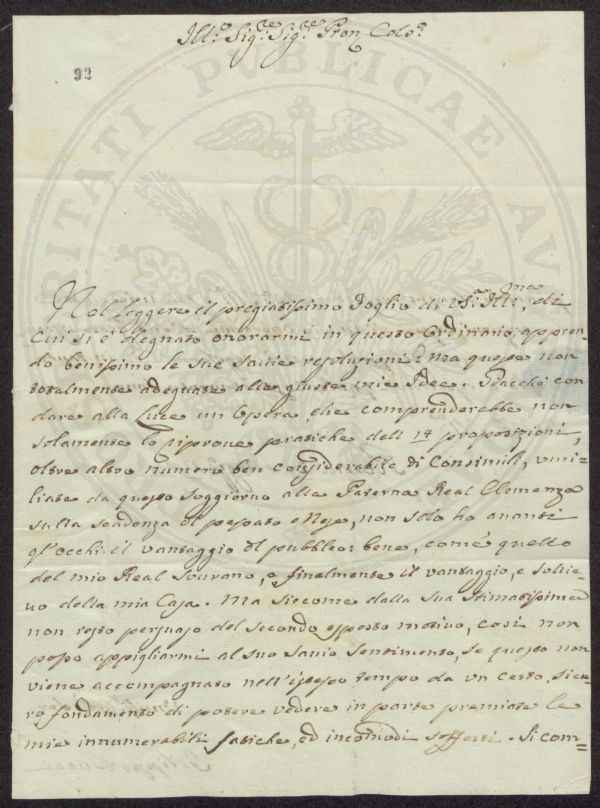 Ill:º Sig:re Sig:re Pron Colº:
92
VERITATI PUBLICAE
Nel leggere il pregiatissimo Foglio di VS:a Ill:ma, di
cui si è degnato onorarmi in questo Ordinario appren-
do benissimo le sue savie resoluzioni: Ma queste non
totalmente adequate alle giuste mie Idee. Giacchè con
dare alla Luce un Opera, che comprenderebbe non
solamente le riprove pratiche dell 14 proposizioni,
oltre altro numero ben considerabile di Consimili, umi-
liate da questo soggiorno alla Paterna Real Clemenza
sulla scadenza del passato Mese, non solo ho avanti
gl'occhi il vantaggio del pubblco: bene, com'è quello
del mio Real Sovrano, e finalmente il vantaggio, e sollie-
vo della mia Casa. Ma siccome dalla sua Stimatissima
non resto persuaso del secondo espresso motivo, così non
posso appigliarmi al suo savio sentimento, se questo non
viene accompagnato nell'istesso tempo da un certo, sicu-
ro fondamento di potere vedere in parte premiate le
mie innumerabili fatiche, ed incomodi sofferti. Si com-